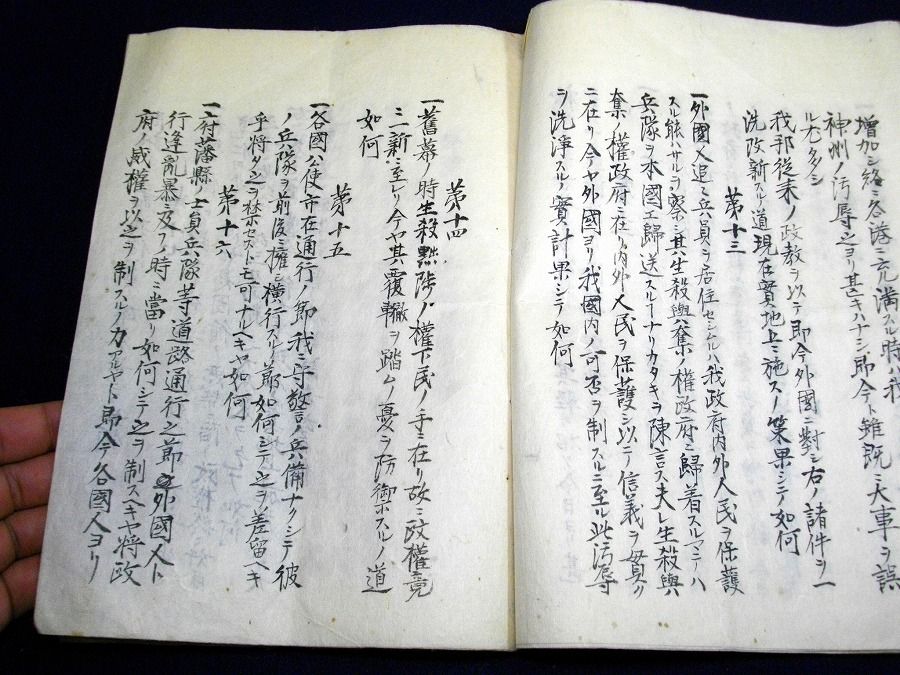 増加シ終ニ各港ニ充満スル時ハ我
神州ノ汚辱之ヨリ甚キハナシ即今ト雖既ニ大事ヲ誤
ル尤多シ
我邦従来ノ政教ヲ以テ即今外國ニ對シ右ノ諸件ヲ一
洗改新スルノ道現在實地上ニ施スノ策果シテ如何
第十三
一外國人追々兵員ヲ居住セシムルハ我政府内外人民ヲ保護
スル能ハサルヲ察シ其生殺與奪ノ權政府ニ歸着スルマテハ
兵隊ヲ本國エ歸送スルヿナリカタキヲ陳言ス夫レ生殺與
奪ノ權政府ニ在リ内外人民ヲ保護シ以テ信義ヲ貫ク
ニ在リ今ヤ外國ヨリ我國内ノ可否ヲ制スルニ至ル此汚辱
ヲ洗浄スルノ實計果シテ如何
第十四
一舊幕ノ時生殺黜陟ノ權下民ノ手ニ在リ故ニ政權竟
ニ一新ニ至レリ今ヤ其覆轍ヲ踏ムノ憂ヲ防御スルノ道
如何
第十五
一各國公使市在通行ノ節我ニ守警ノ兵備ナクシテ彼
ノ兵隊ヲ前後ニ擁シ横行スルノ節如何シテ之ヲ差留ヘキ
乎将タ之ヲ禁セスト モ可ナルヘキヤ如何
第十六
一府藩縣ノ士員兵隊等道路通行之節外國人ト
行逢乱暴ニ及フノ時ニ當リ如何シテ之ヲ制スヘキヤ将政
府ノ威權ヲ以之ヲ制スルノ力アルヤト即今各國人ヨリ